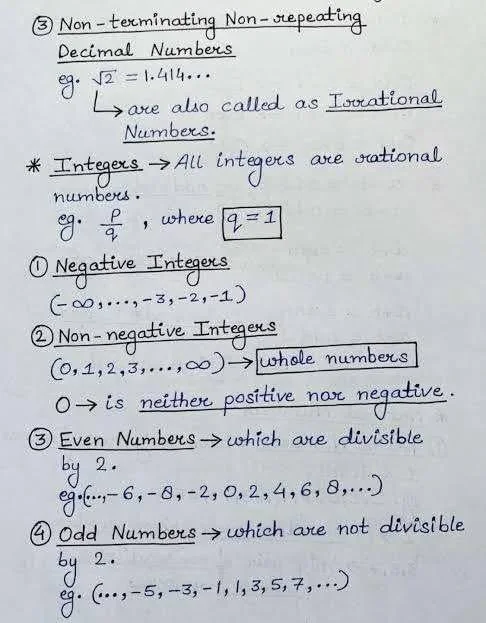 ③ Non-terminating Non-repeating
Decimal Numbers
eg. √2 = 1.414...
↳ are also called as Irrational
Numbers.
* Integers → All integers are rational
numbers.
eg. p/q , where q = 1
① Negative Integers
(-∞,...,-3,-2,-1)
② Non-negative Integers
(0,1,2,3,...,∞) → whole numbers
0 → is neither positive nor negative.
③ Even Numbers → which are divisible
by 2.
eg.(...,-6,-8,-2,0,2,4,6,8,...)
④ Odd Numbers → which are not divisible
by 2.
eg. (...,-5,-3,-1,1,3,5,7,...)